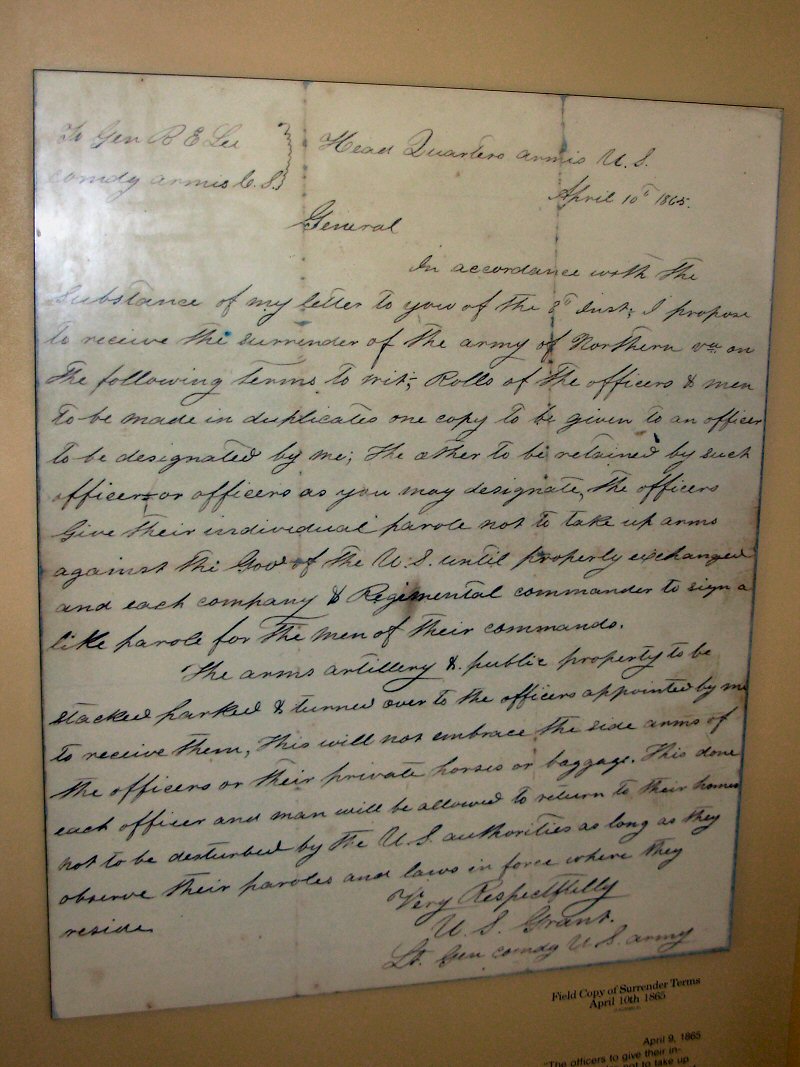 To Gen R E Lee
comdg armis C.S.
Head Quarters armis U.S.
April 10th 1865.
General
In accordance with the
Substance of my letter to you of the 8th Inst; I propose
to receive the surrender of the army of Northern Va on
the following terms to wit; Rolls of the officers & men
to be made in duplicates one copy to be given to an officer
to be designated by me; the other to be retained by such
officers or officers as you may designate, the officers
Give their individual parole not to take up arms
against the Gov of the U.S. until properly exchanged
and each company & Regimental commander to sign a
like parole for the men of their commands.
The arms artillery & public property to be
stacked parked & turned over to the officers appointed by me
to receive them, This will not embrace the side arms of
the officers or their private horses or baggage. This done
each officer and man will be allowed to return to their homes
not to be desturbed by the U.S. authorities as long as they
observe their paroles and laws in force where they
reside
Very Respectfully
U. S. Grant.
Lt. Gen comdg U.S. army
Field Copy of Surrender Terms
April 10th 1865
April 9, 1865
"The officers to give their in-
not to take up